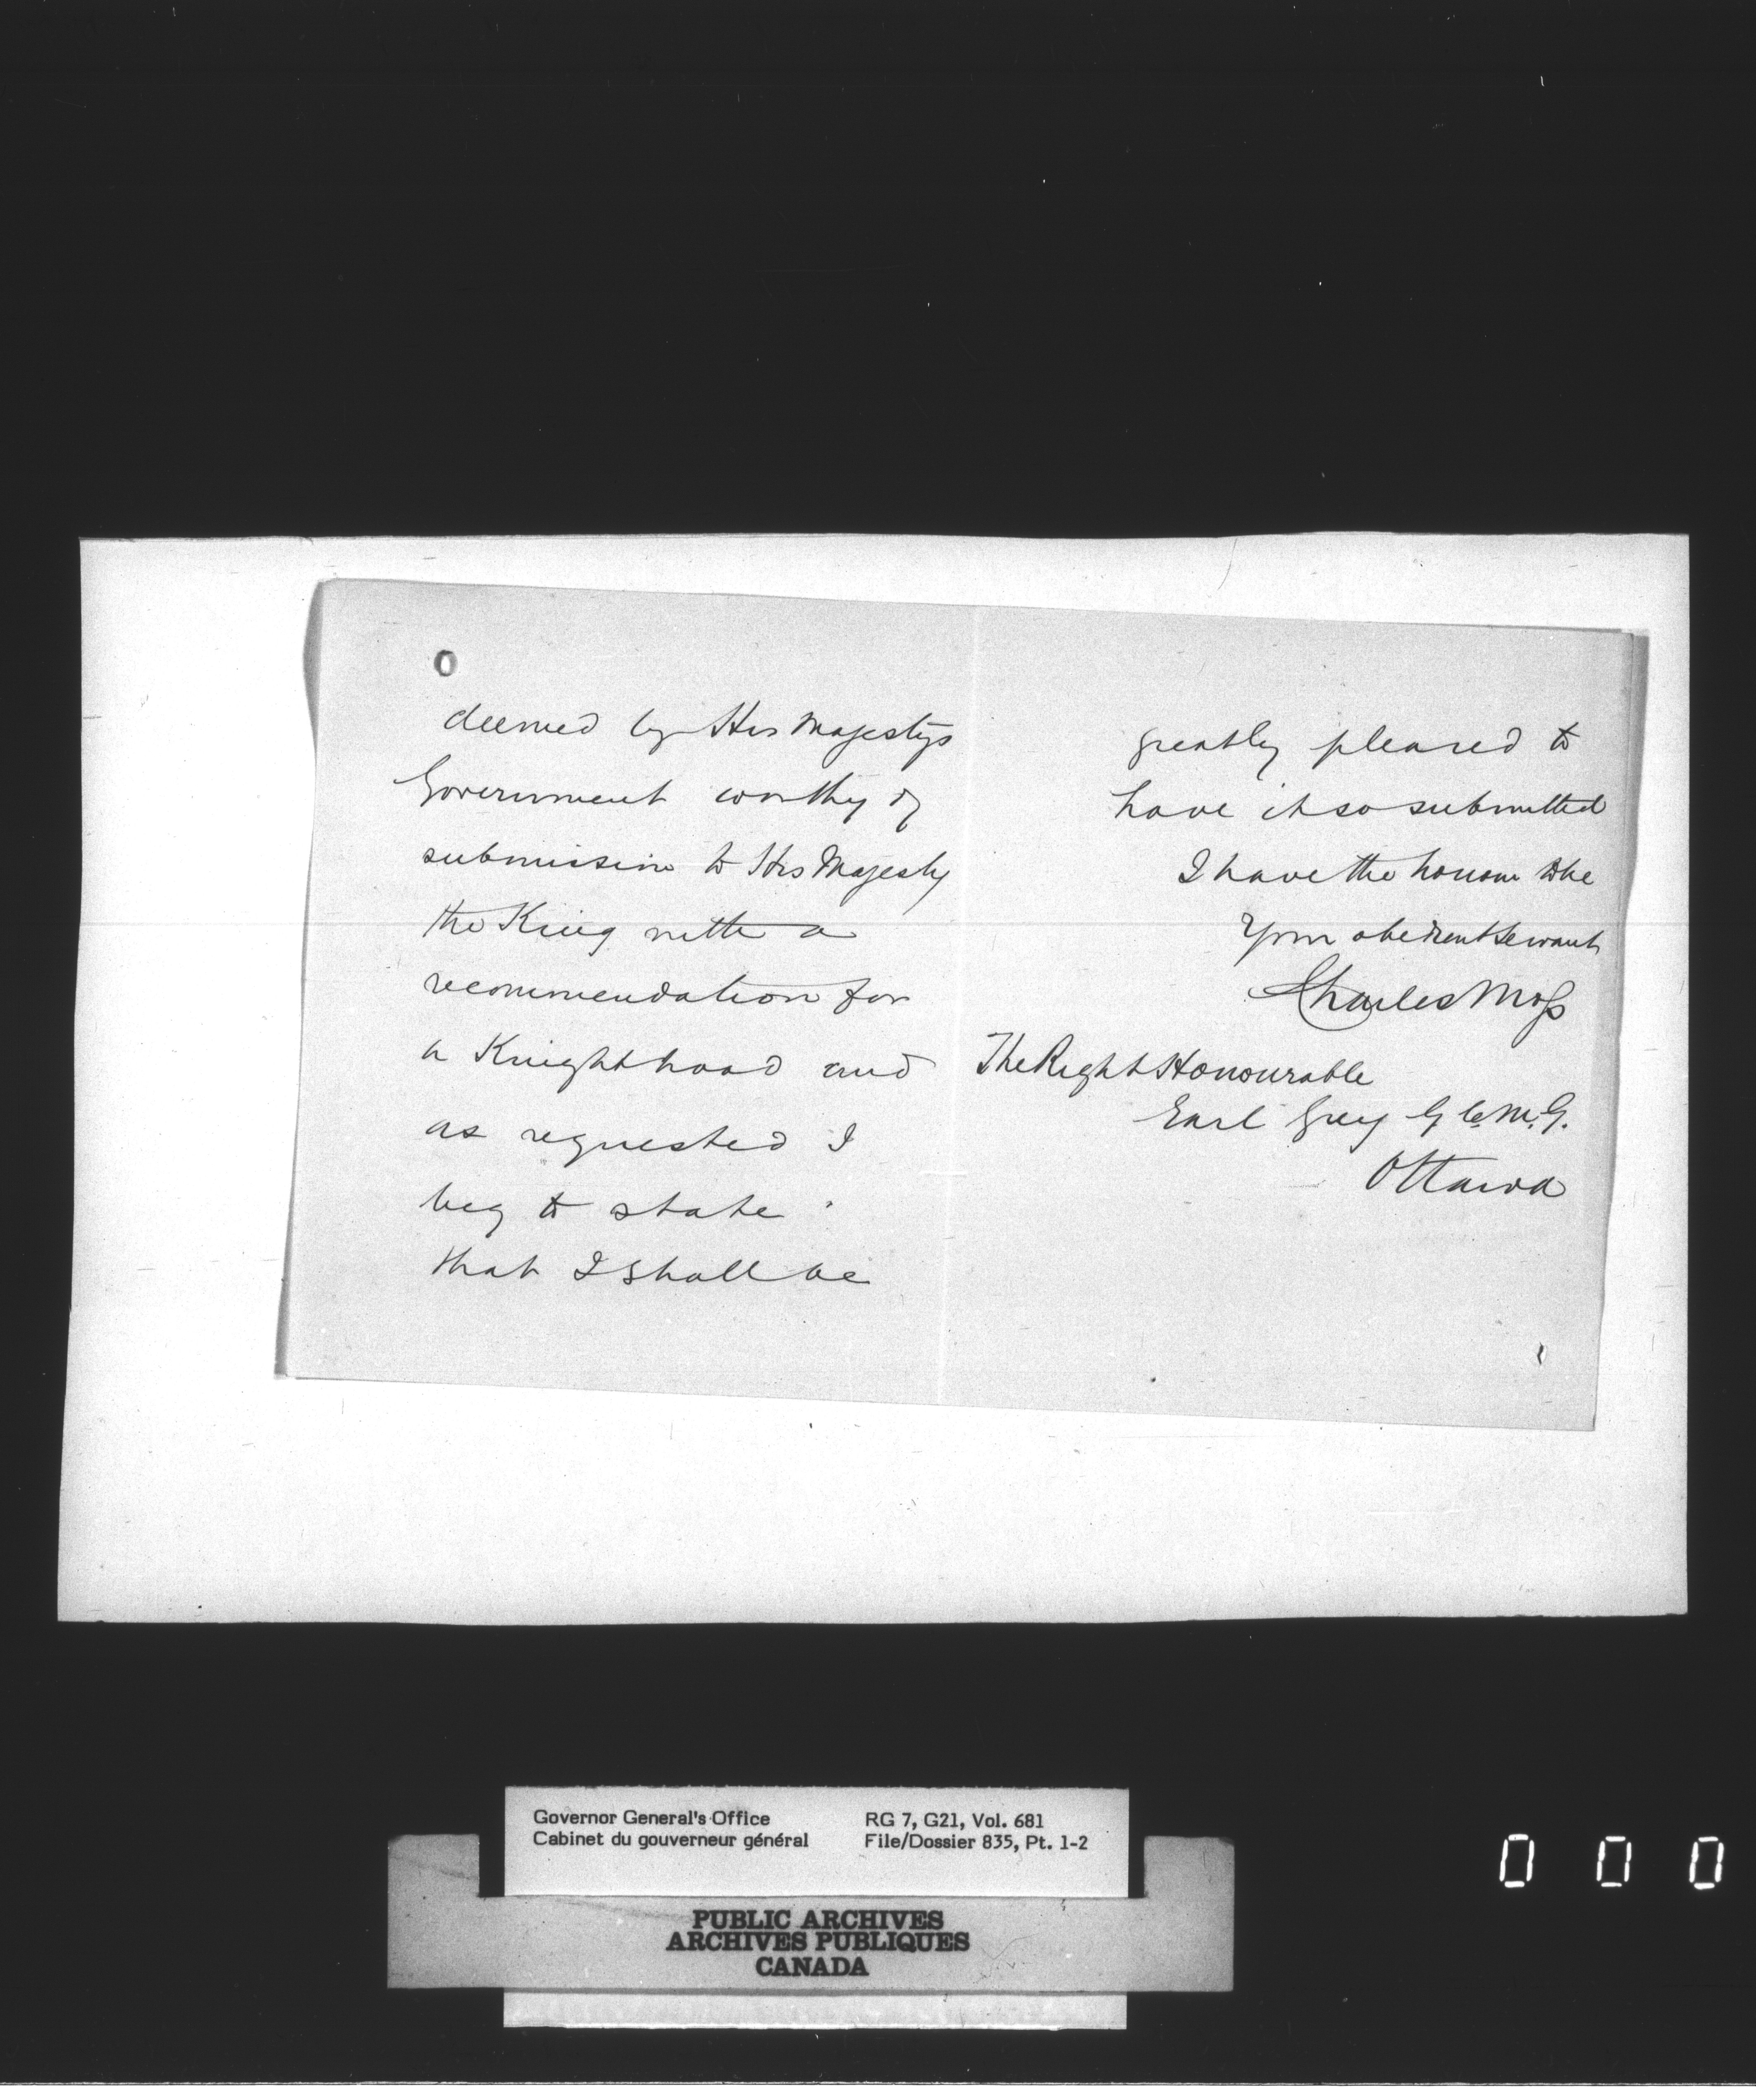 deemed by His Majestys
Government worthy of
submission to His Majesty
the King with a
recommendation for
a Knighthood and
as requested I
beg to state
that I shall be
greatly pleased to
have it so submitted
I have the honour to be
Your obedient servant
Charles Moss
The Right Honourable
Earl Grey G.C.M.G.
Ottawa
Governor General's Office
Cabinet du gouverneur général
RG 7, G21, Vol. 681
File/Dossier 835, Pt. 1-2
PUBLIC ARCHIVES
ARCHIVES PUBLIQUES
CANADA
0 0 0